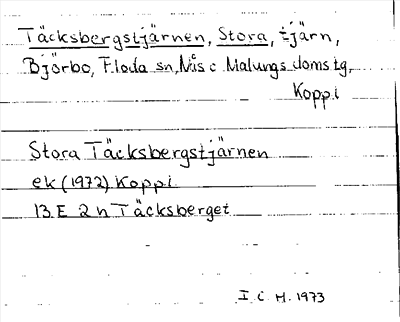 Täcksbergstjärnen, Stora, tjärn,
Björbo, Floda sn, Nås o Malungs domstg,
Koppl
Stora Täcksbergstjärnen
ek (1972) Koppl.
13 E 2 h Täcksberget
I. C. H. 1973